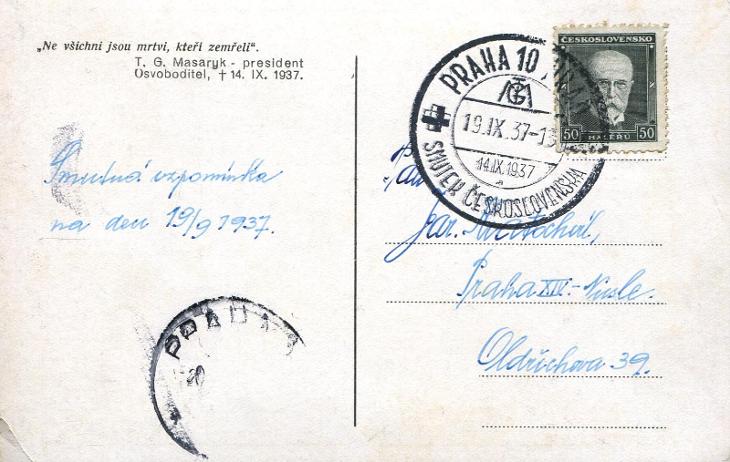 „Ne všichni jsou mrtvi, kteří zemřeli".
T. G. Masaryk - president
Osvoboditel, † 14. IX. 1937.
Smutná vzpomínka
na den 19/9 1937.
PRAHA
20
PRAHA 10 HRAD
TGM
19.IX.37-1
14.IX.1937
SMUTEK ČESKOSLOVENSKA
ČESKOSLOVENSKO
50 HALÉŘŮ 50
Jar.
Praha XIV.-Nusle.
Oldřichova 39.